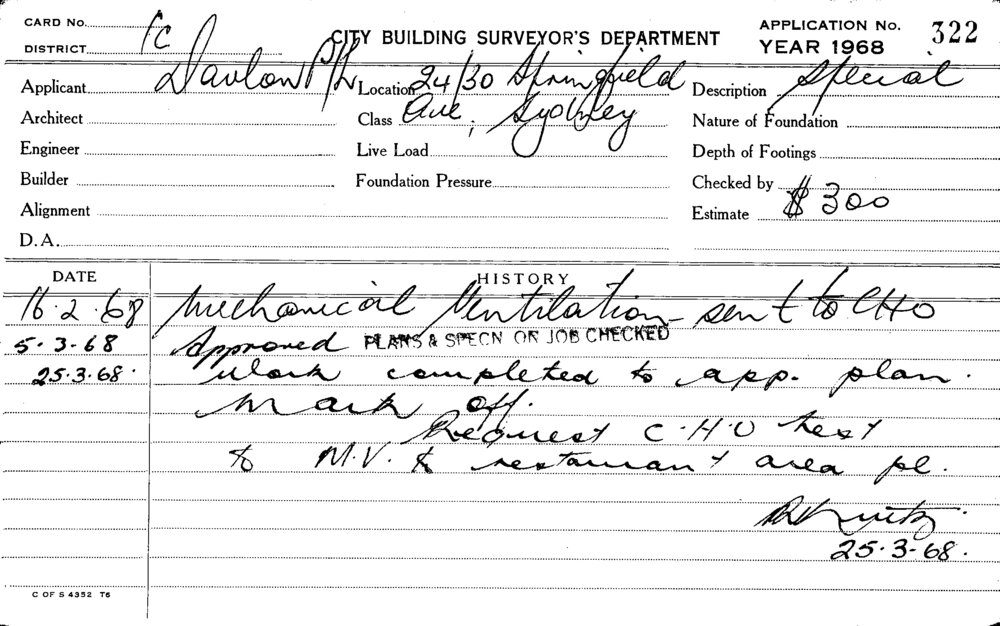 CARD No.
DISTRICT
CITY BUILDING SURVEYOR'S DEPARTMENT
APPLICATION No. 322
YEAR 1968
Applicant Davlow P/L
Location 24/30 Springfield
Ave, Sydney
Description Special
Architect
Class
Nature of Foundation
Engineer
Live Load
Depth of Footings
Builder
Foundation Pressure
Checked by
Alignment
Estimate $300
D.A.
DATE HISTORY
16.2.68 Mechanical Ventilation - sent to CHO
5.3.68 Approved PLANS & SPECN ON JOB CHECKED
25.3.68. Work completed to app. plan.
Mark off.
Request C.H.O test
to M.V. to restaurant area pl.
25.3.68.
C OF S 4352 T6